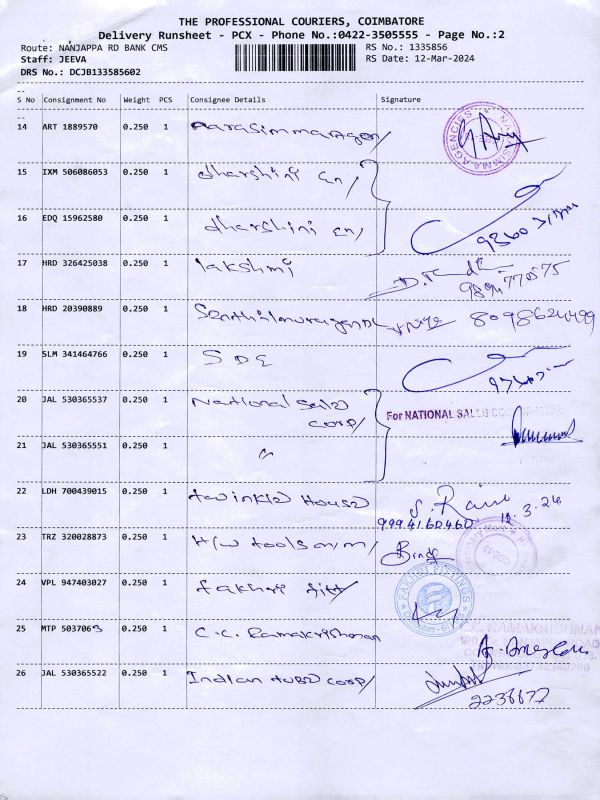 THE PROFESSIONAL COURIERS, COIMBATORE
Delivery Runsheet - PCX - Phone No.:0422-3505555 - Page No.:2
Route: NANJAPPA RD BANK CMS RS No.: 1335856
Staff: JEEVA RS Date: 12-Mar-2024
DRS No.: DCJB133585602
S No Consignment No Weight PCS Consignee Details Signature
14 ART 1889570 0.250 1
15 IXM 506086053 0.250 1 dharshini En/
16 EDQ 15962580 0.250 1 dharshini en/
17 HRD 326425038 0.250 1 lakshmi
18 HRD 20390889 0.250 1 8098624499
19 SLM 341464766 0.250 1 SDE
20 JAL 530365537 0.250 1 National Sales
corp/
For NATIONAL SALES
21 JAL 530365551 0.250 1 "
22 LDH 700439015 0.250 1 twinkle House
9994160460 12.3.24
23 TRZ 320028873 0.250 1 H/w tools m/m/
24 VPL 947403027 0.250 1 fakhri fitt/
FAKHRI FITTINGS
25 MTP 503706 0.250 1 C.C. Ramakrishnan
RAMAKRISHNAN
26 JAL 530365522 0.250 1 Indian tube corp/